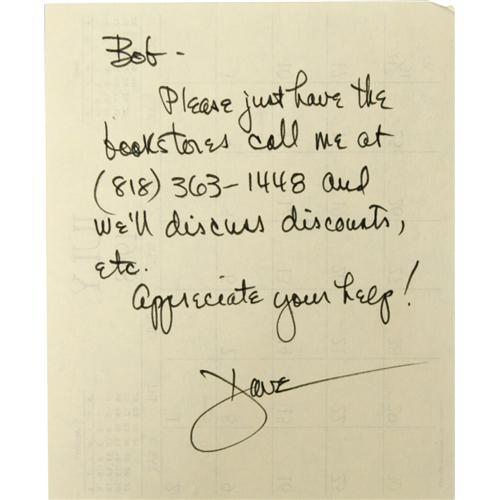 Bob -
Please just have the
bookstores call me at
(818) 363-1448 and
we'll discuss discounts,
etc.
Appreciate your help!
Dave